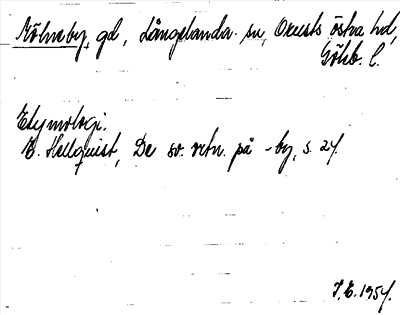 Mölneby, gd, Långelanda sn, Orusts östra hd,
Göteb. l.
Etymologi.
E. Hellquist, De sv. ortn. på -by, s. 24.
J.E. 1954.